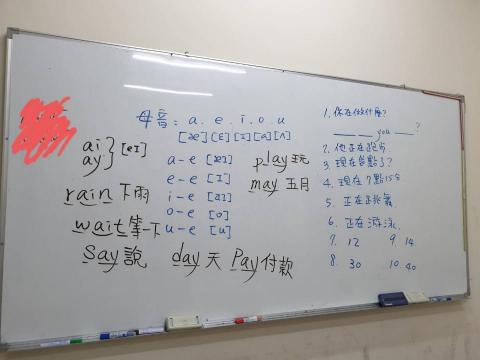 母音: a. e. i. o. u
[æ] [ɛ] [ɪ] [ɑ] [ʌ]
ai
ay } [eɪ]
a-e play 玩
e-e [ɪ] may 五月
rain 下雨 i-e [aɪ]
o-e [o]
wait 等一下 u-e [u]
say 說 day 天 Pay 付款
1. 你在做什麼?
___ ___ you ___ ?
2. 他正在跑步
3. 現在幾點了?
4. 現在7點15分
5. 正在
6. 正在游泳.
7. 12 9. 14
8. 30 10. 40